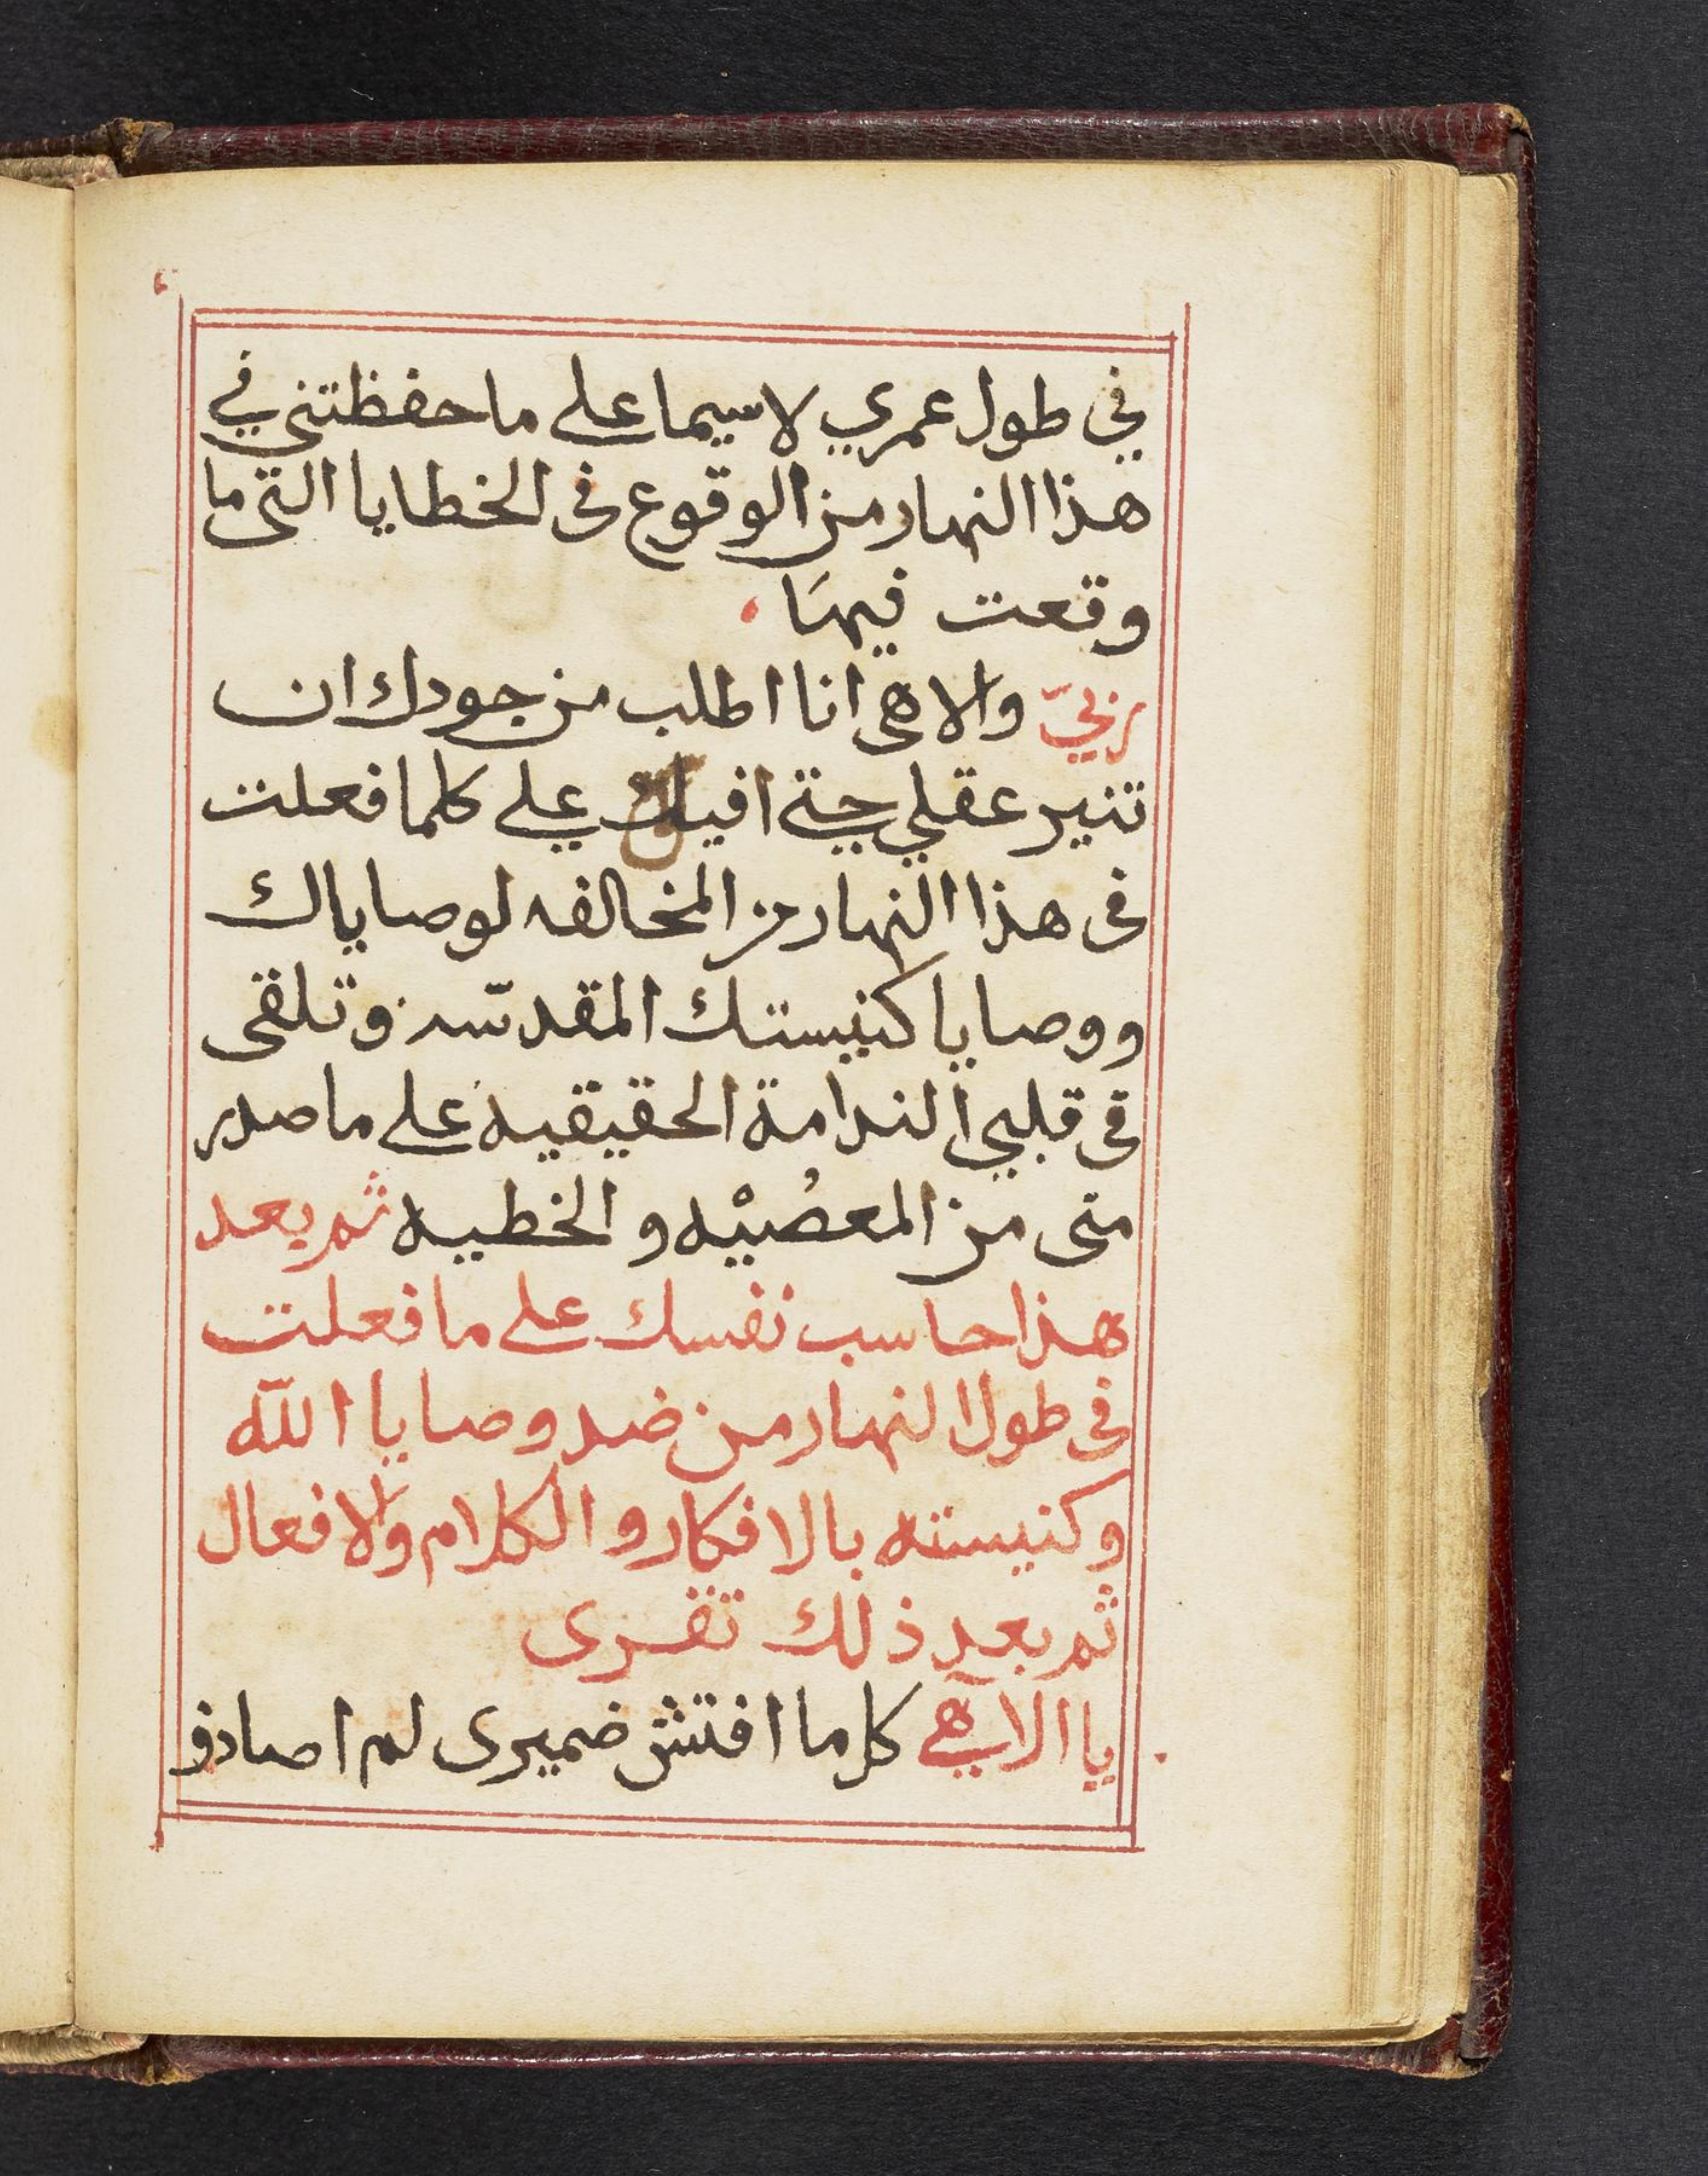 في طول عمري لاسيما علي ما حفظتني في
هذا النهار من الوقوع فى الخطايا التى ما
وقعت فيهَا
ربيّ والاهى انا اطلب من جودك ان
تنير عقلي حتي افيق علي كلما فعلت
فى هذا النهار من المخالفه لوصاياك
ووصايا كنيستك المقدّسه وتلقى
فى قلبي الندامة الحقيقيه علي ما صدر
منى من المعصُيْه و الخطيه ثم بعد
هذا حاسب نفسك على ما فعلت
فى طول النهار من ضد وصايا الله
وكنيسته بالافكار و الكلام والافعال
ثم بعد ذلك تقرى
يا الاهي كل ما افتش ضميرى لم اصادف